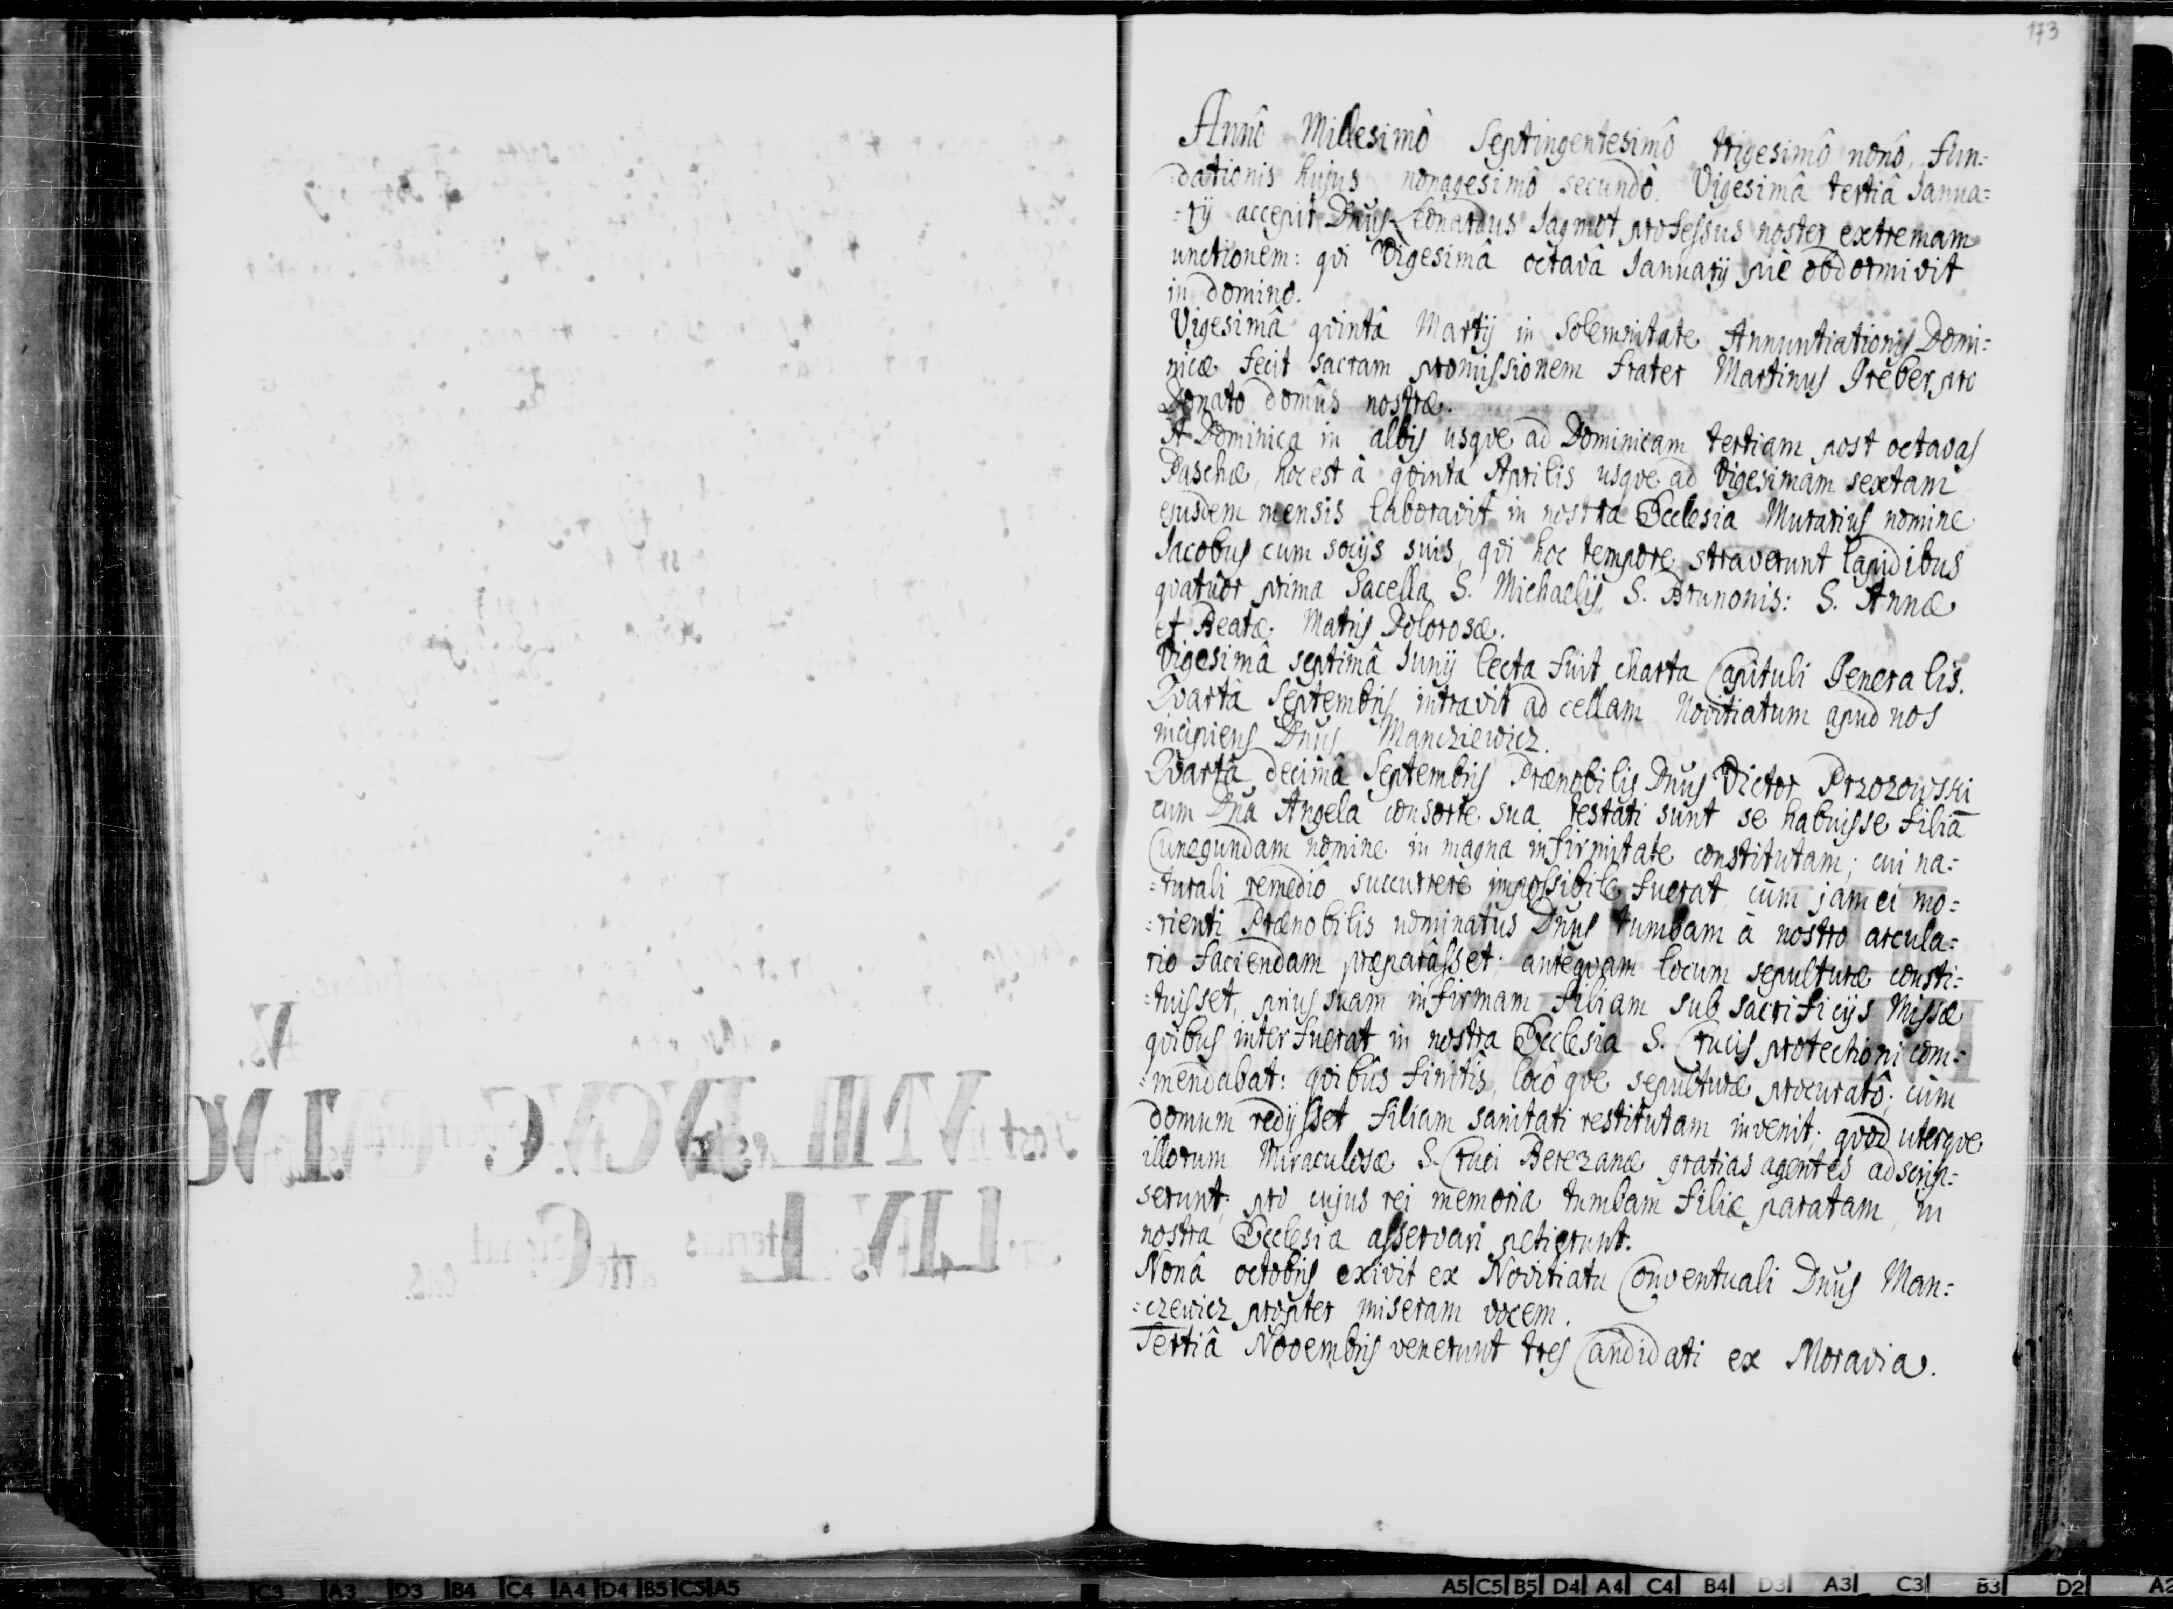 173
Annô Millesimô Septingentesimô trigesimô nonô, fun:
:dationis hujus nonagesimô secundô. Vigesimâ tertiâ Janua:
:rÿ accepit Dn̄us Leonardus Jagmot professus noster extremam
unctionem: qvi Vigesimâ octavâ Januarÿ piè obdormivit
in domino.
Vigesimâ qvintâ Martÿ in Solemnitate Annuntiationis Domi:
nicæ fecit sacram promissionem frater Martinus Greber pro
Donato domûs nostræ.
A Dominica in albis usqve ad Dominicam tertiam post octavas
Paschæ, hoc est â qvinta Aprilis usqve ad Vigesimam sextam
ejusdem mensis laboravit in nostra Ecclesia Murarius nomine
Jacobus cum socÿs suis, qvi hoc tempore straverunt lapidibus
qvatuor prima Sacella S. Michaelis, S. Brunonis: S. Annæ
et Beatæ Matris Dolorosæ.
Vigesimâ septimâ Junÿ lecta fuit charta Capituli Generalis.
Qvartâ Septembris intravit ad cellam Novitiatum apud nos
incipiens Dn̄us Manczewicz.
Qvartâ decimâ Septembris Prænobilis Dn̄us Victor Przozowski
cum Dn̄a Angela consorte sua testati sunt se habuisse filiā
Cunegundam nomine in magna infirmitate constitutam; cui na:
:turali remediô succurrere impossibile fuerat cùm jam ei mo:
:rienti Prænobilis nominatus Dn̄us tumbam â nostro arcula:
rio faciendam præparâsset: anteqvam locum sepulturæ consti:
:tuisset, prius suam infirmam filiam sub sacrificÿs Missæ
qvibus interfuerat in nostra Ecclesia S. Crucis protectioni com:
:mendabat: qvibûs finitîs, locô qve sepulturæ procuratô, cùm
domum redÿsset filiam sanitati restitutam invenit; qvod uterqve
illorum Miraculosæ S. Cruci Berezanæ gratias agentes adscrip:
serunt; pro cujus rei memoria tumbam filiæ paratam, in
nostra Ecclesia asservari petierunt.
Nonâ octobris exivit ex Novitiatu Conventuali Dn̄us Man:
:czewicz propter miseram vocem.
Tertiâ Novembris venerunt tres Candidati ex Moravia.
C3 A3 D3 B4 C4 A4 D4 B5 C5 A5 A5 C5 B5 D4 A4 C4 B4 D3 A3 C3 B3 D2 A2